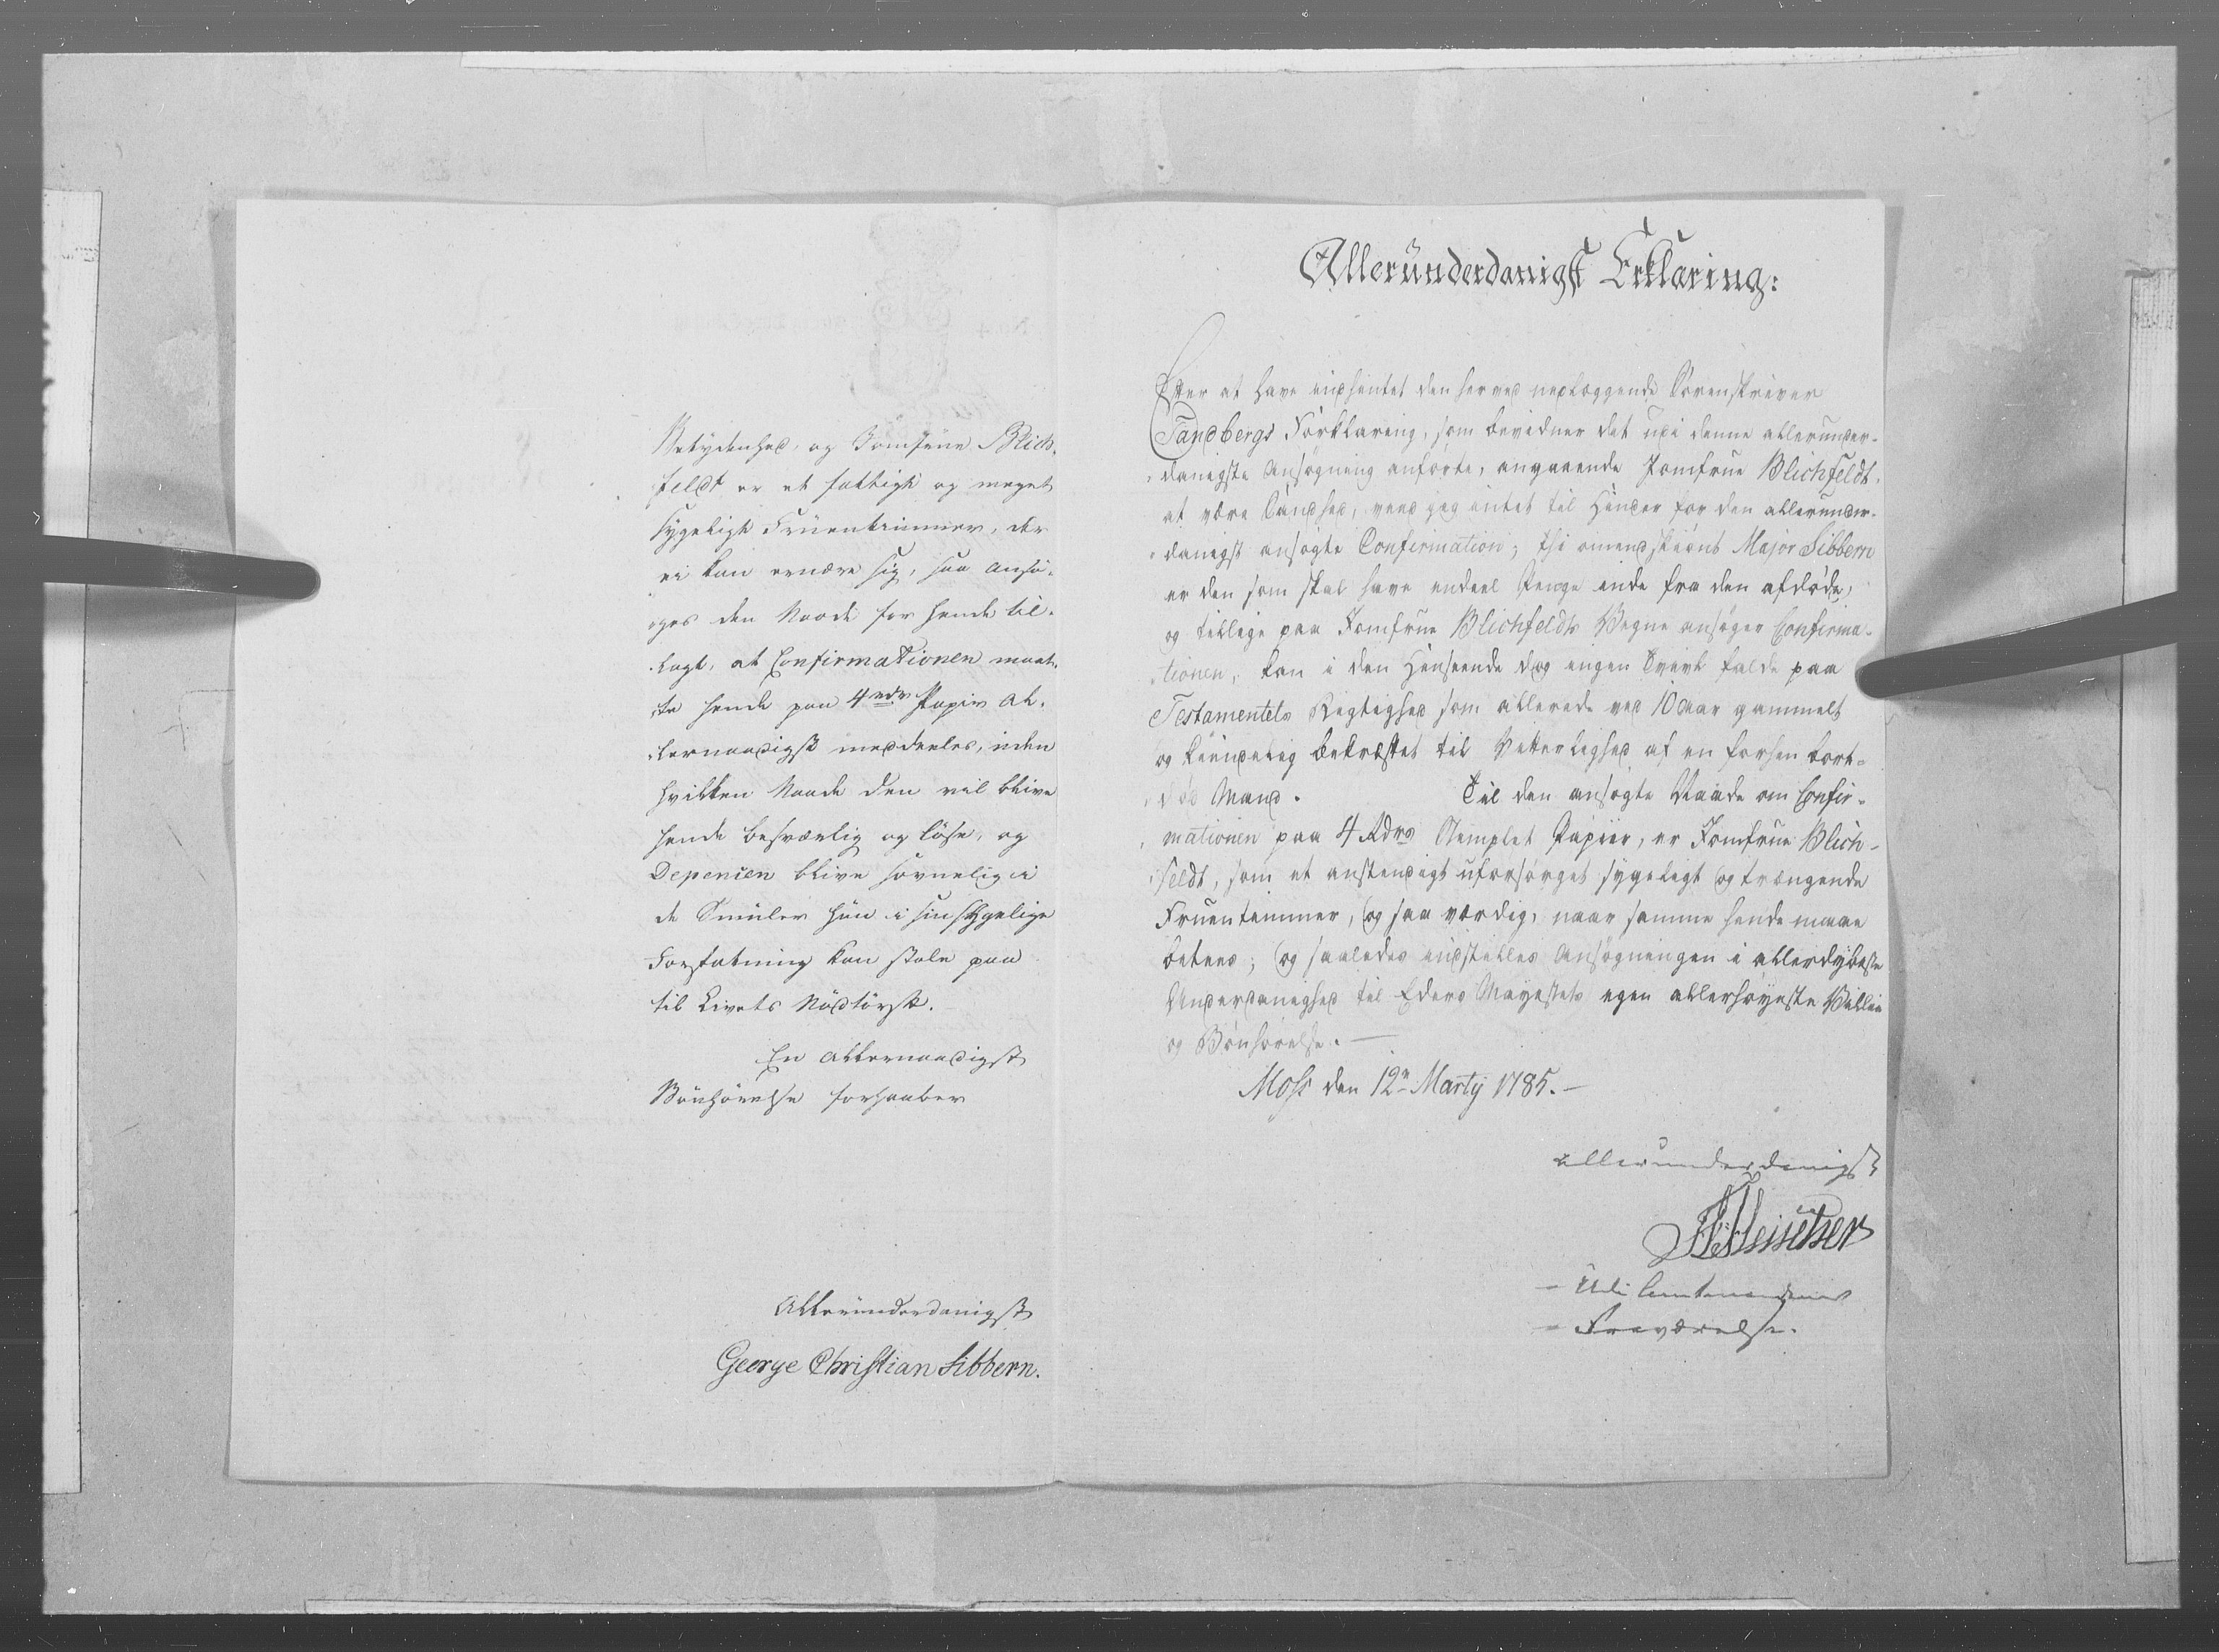 Betydenhed, og Jomfrue Blich-
feldt er et fattigt og meget
sygeligt Fruentimmer, der
ei kan ernære sig, saa ansø-
ges den Naade for hende til-
lagt, at Confirmationen maat-
te hende paa 4 rdrs Papir al-
lernaadigst meddeeles, uden
hvilken Naade den vil blive
hende besværlig og løse, og
Depencen blive føwnelig i
de Smuler hun i sin sygelige
Forfatning kan stole paa
til Livets Nødtørft.
En allernaadigst
Bønhørelse forhaaber
Allerunderdanigst
George Christian Sibbern.
Allerunderdanigst Erklæring:
Efter at have indhentet den herved nedlæggende Sorenskriver
Sandbergs Forklaring, som bevidner det udi denne allerunder-
danigste Ansøgning anførte, angaaende Jomfrue Blichfeldt,
at være Sandhed, veed jeg intet til Hinder for den allerunder-
danigst ansøgte Confirmation; thi omendskiønt Major Sibbern
er den som skal have endeel Penge inde fra den afdøde,
og tillige paa Jomfrue Blichfeldts Vegne ansøger Confirma-
tionen, kan i den Henseende dog ingen Tvivl falde paa
Testamentets Rigtighed som allerede ved 10 Aar gammelt
og kiendelig bekræftet til Vitterlighed af en forhen bort-
død Mand. Til den ansøgte Naade om Confir-
mationen paa 4 Rdrs Stemplet Papiir, er Jomfrue Blich-
feldt, som et anstændigt uforsørget sygeligt og trængende
Fruentimmer, og saa værdig, naar samme hende maae
betees; og saaledes indstilles Ansøgningen i allerdybeste
Underdanighed til Eders Mayestets egen allerhøyeste Villie
og Bønhørelse. —
Moss den 12n Martij 1785. —
allerunderdanigst
– Udi Amtmandens
– Fraværelse.